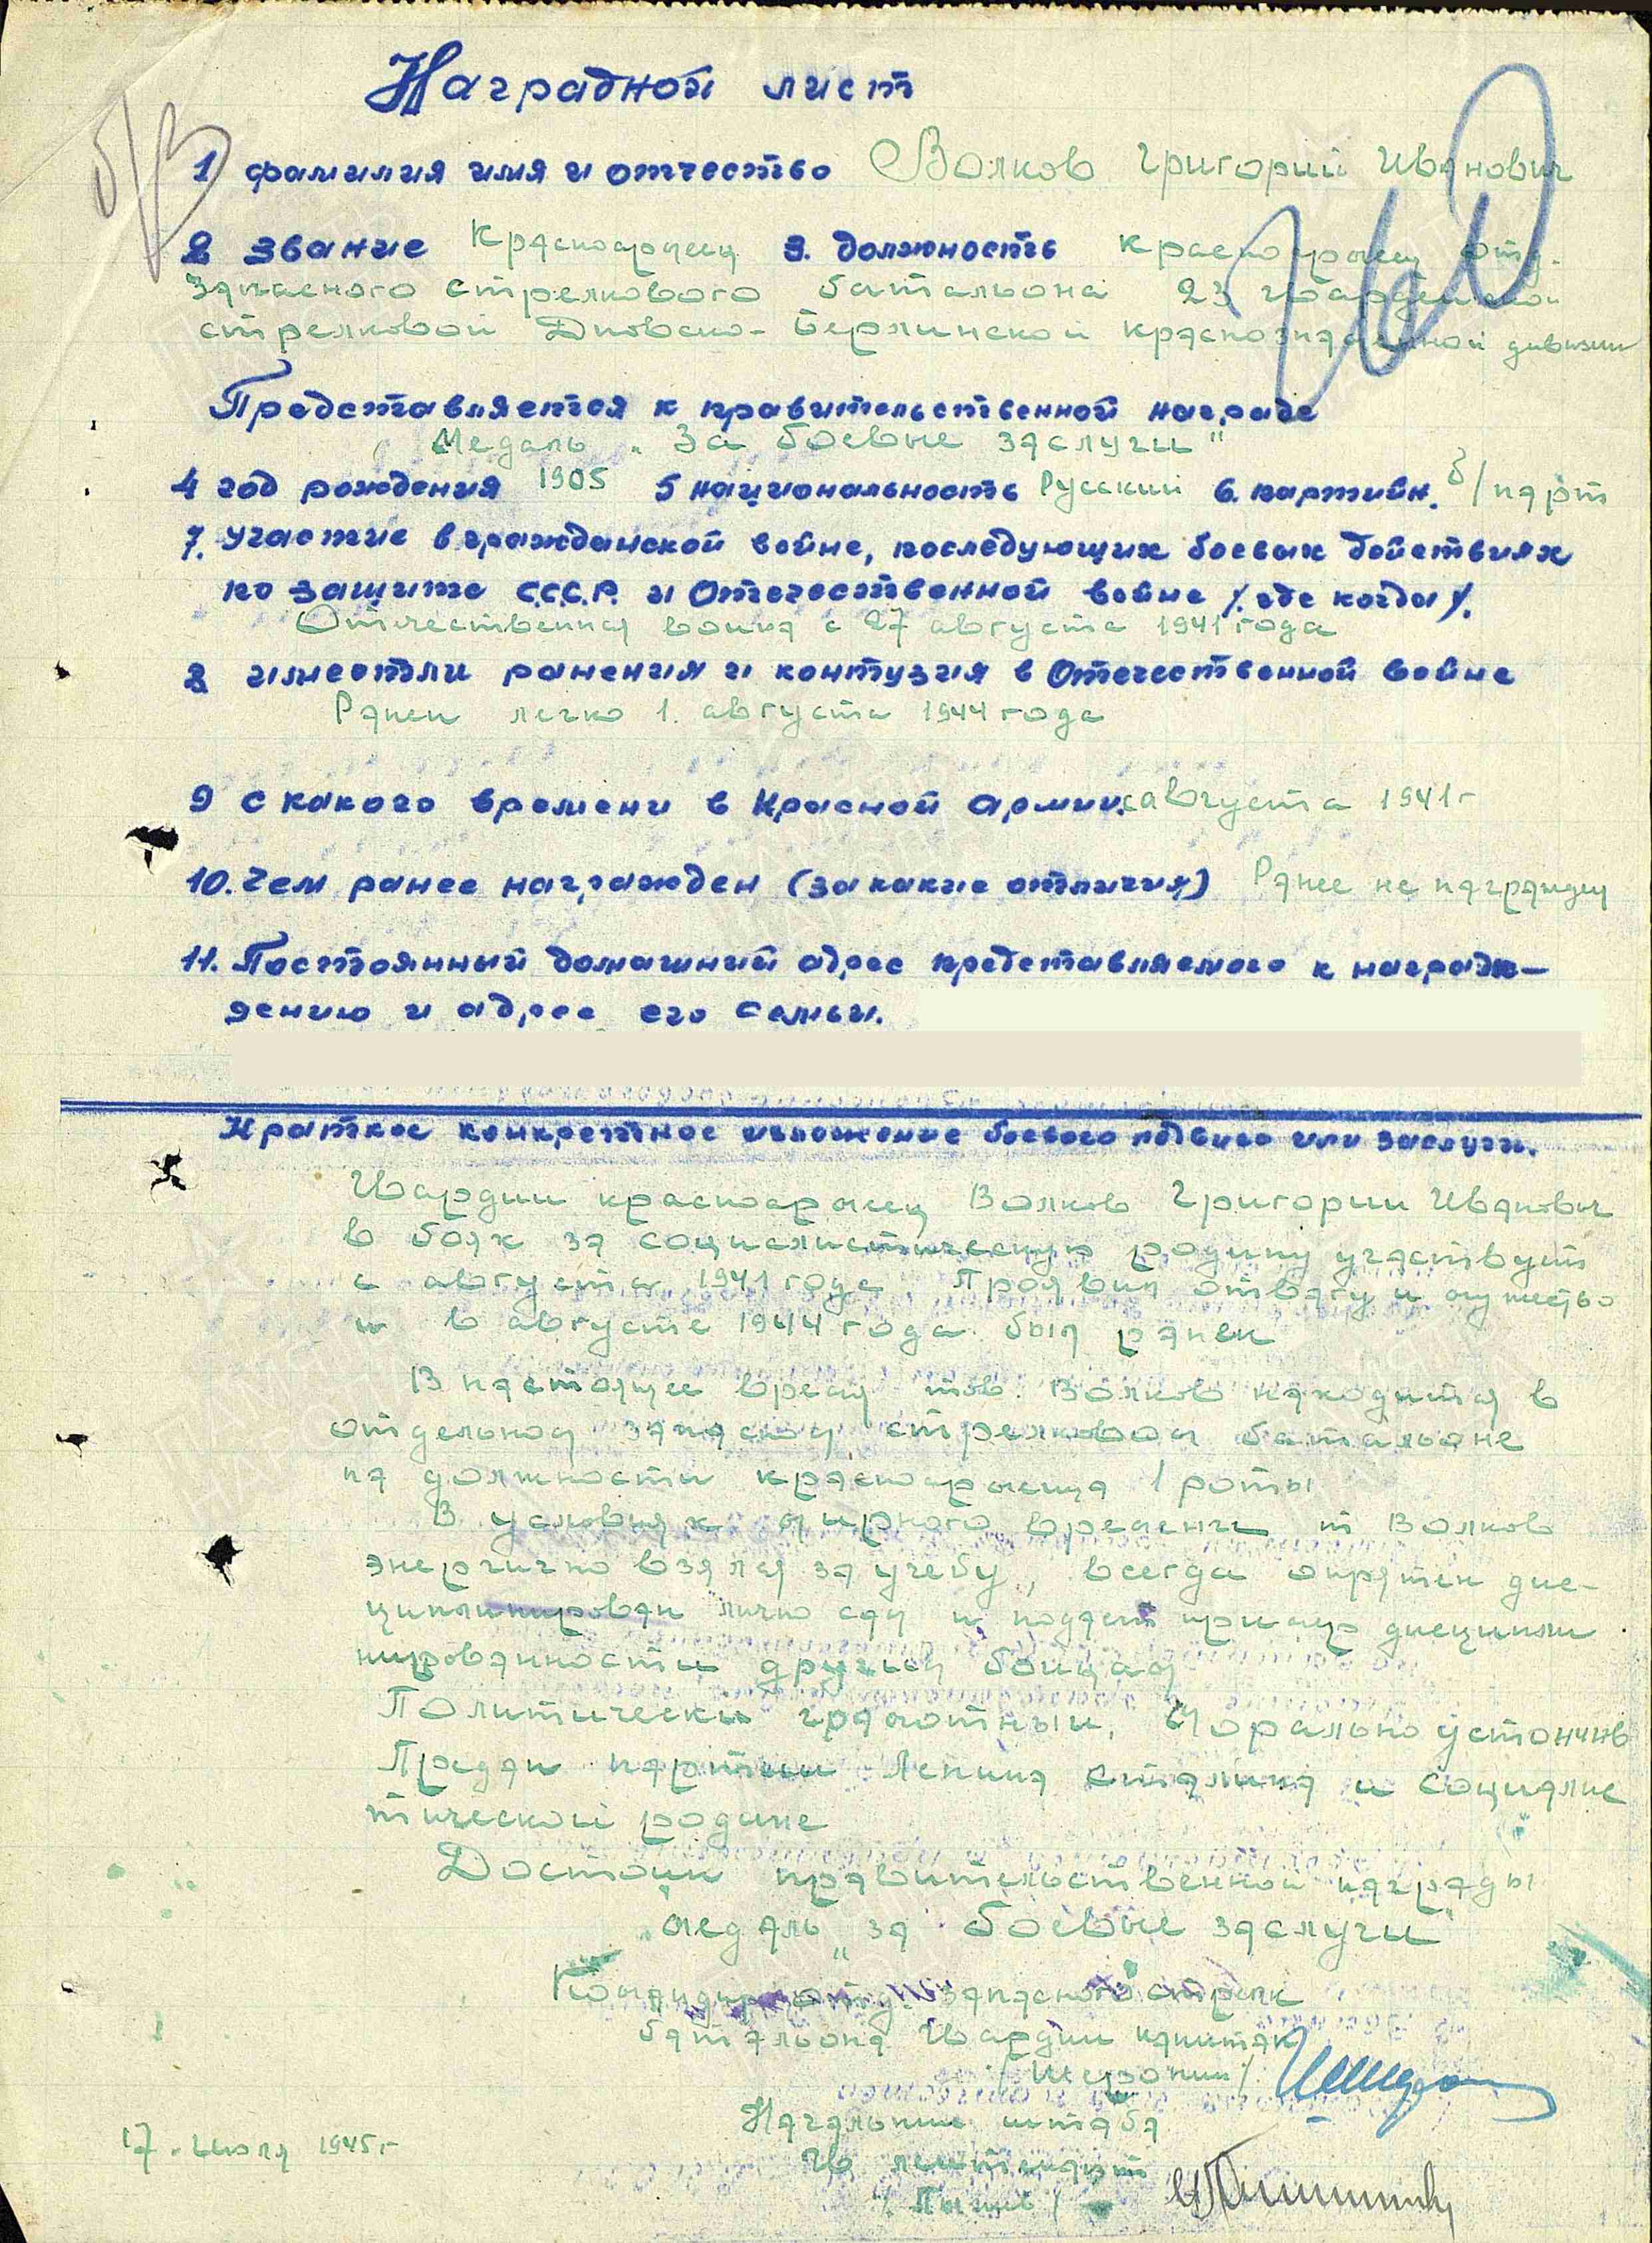 Наградной лист
1 фамилия имя и отчество Волков Григорий Иванович
2 звание Красноармеец 3. должность красноармеец отд.
запасного стрелкового батальона 23 гвардейской
стрелковой Дновско-Берлинской краснознаменной дивизии
Представляется к правительственной награде
Медаль „За боевые заслуги"
4 год рождения 1905 5 национальность Русский 6. партийн. б/парт
7. Участие в гражданской войне, последующих боевых действиях
по защите С.С.С.Р. и Отечественной войне /. где когда /.
Отечественная война с 27 августа 1941 года
8 имеет ли ранения и контузия в Отечественной войне
Ранен легко 1. августа 1944 года
9 с какого времени в Красной армии. с августа 1941 г
10. Чем ранее награжден (за какие отличия) Ранее не награжден
11. Постоянный домашний адрес представляемого к награж-
дению и адрес его семьи.
Краткое конкретное изложение боевого подвига или заслуги.
Гвардии красноармеец Волков Григорий Иванович
в боях за социалистическую родину участвует
с августа 1941 года. Проявил отвагу и мужество
и в августе 1944 года был ранен
В настоящее время тов. Волков находится в
отдельном запасном стрелковом батальоне
на должности красноармейца 1 роты
В условиях мирного времени т Волков
энергично взялся за учебу, всегда опрятен дис-
циплинирован лично сам и подает пример дисципли
нированности другим бойцам
Политически грамотный, Морально устойчив
Предан партии Ленина Сталина и социалис
тической родине
Достоин правительственной награды
медаль „за боевые заслуги"
Командир отд. запасного стрелк
батальона гвардии капитан
Начальник штаба
Гв лейтенант
17. июля 1945 г